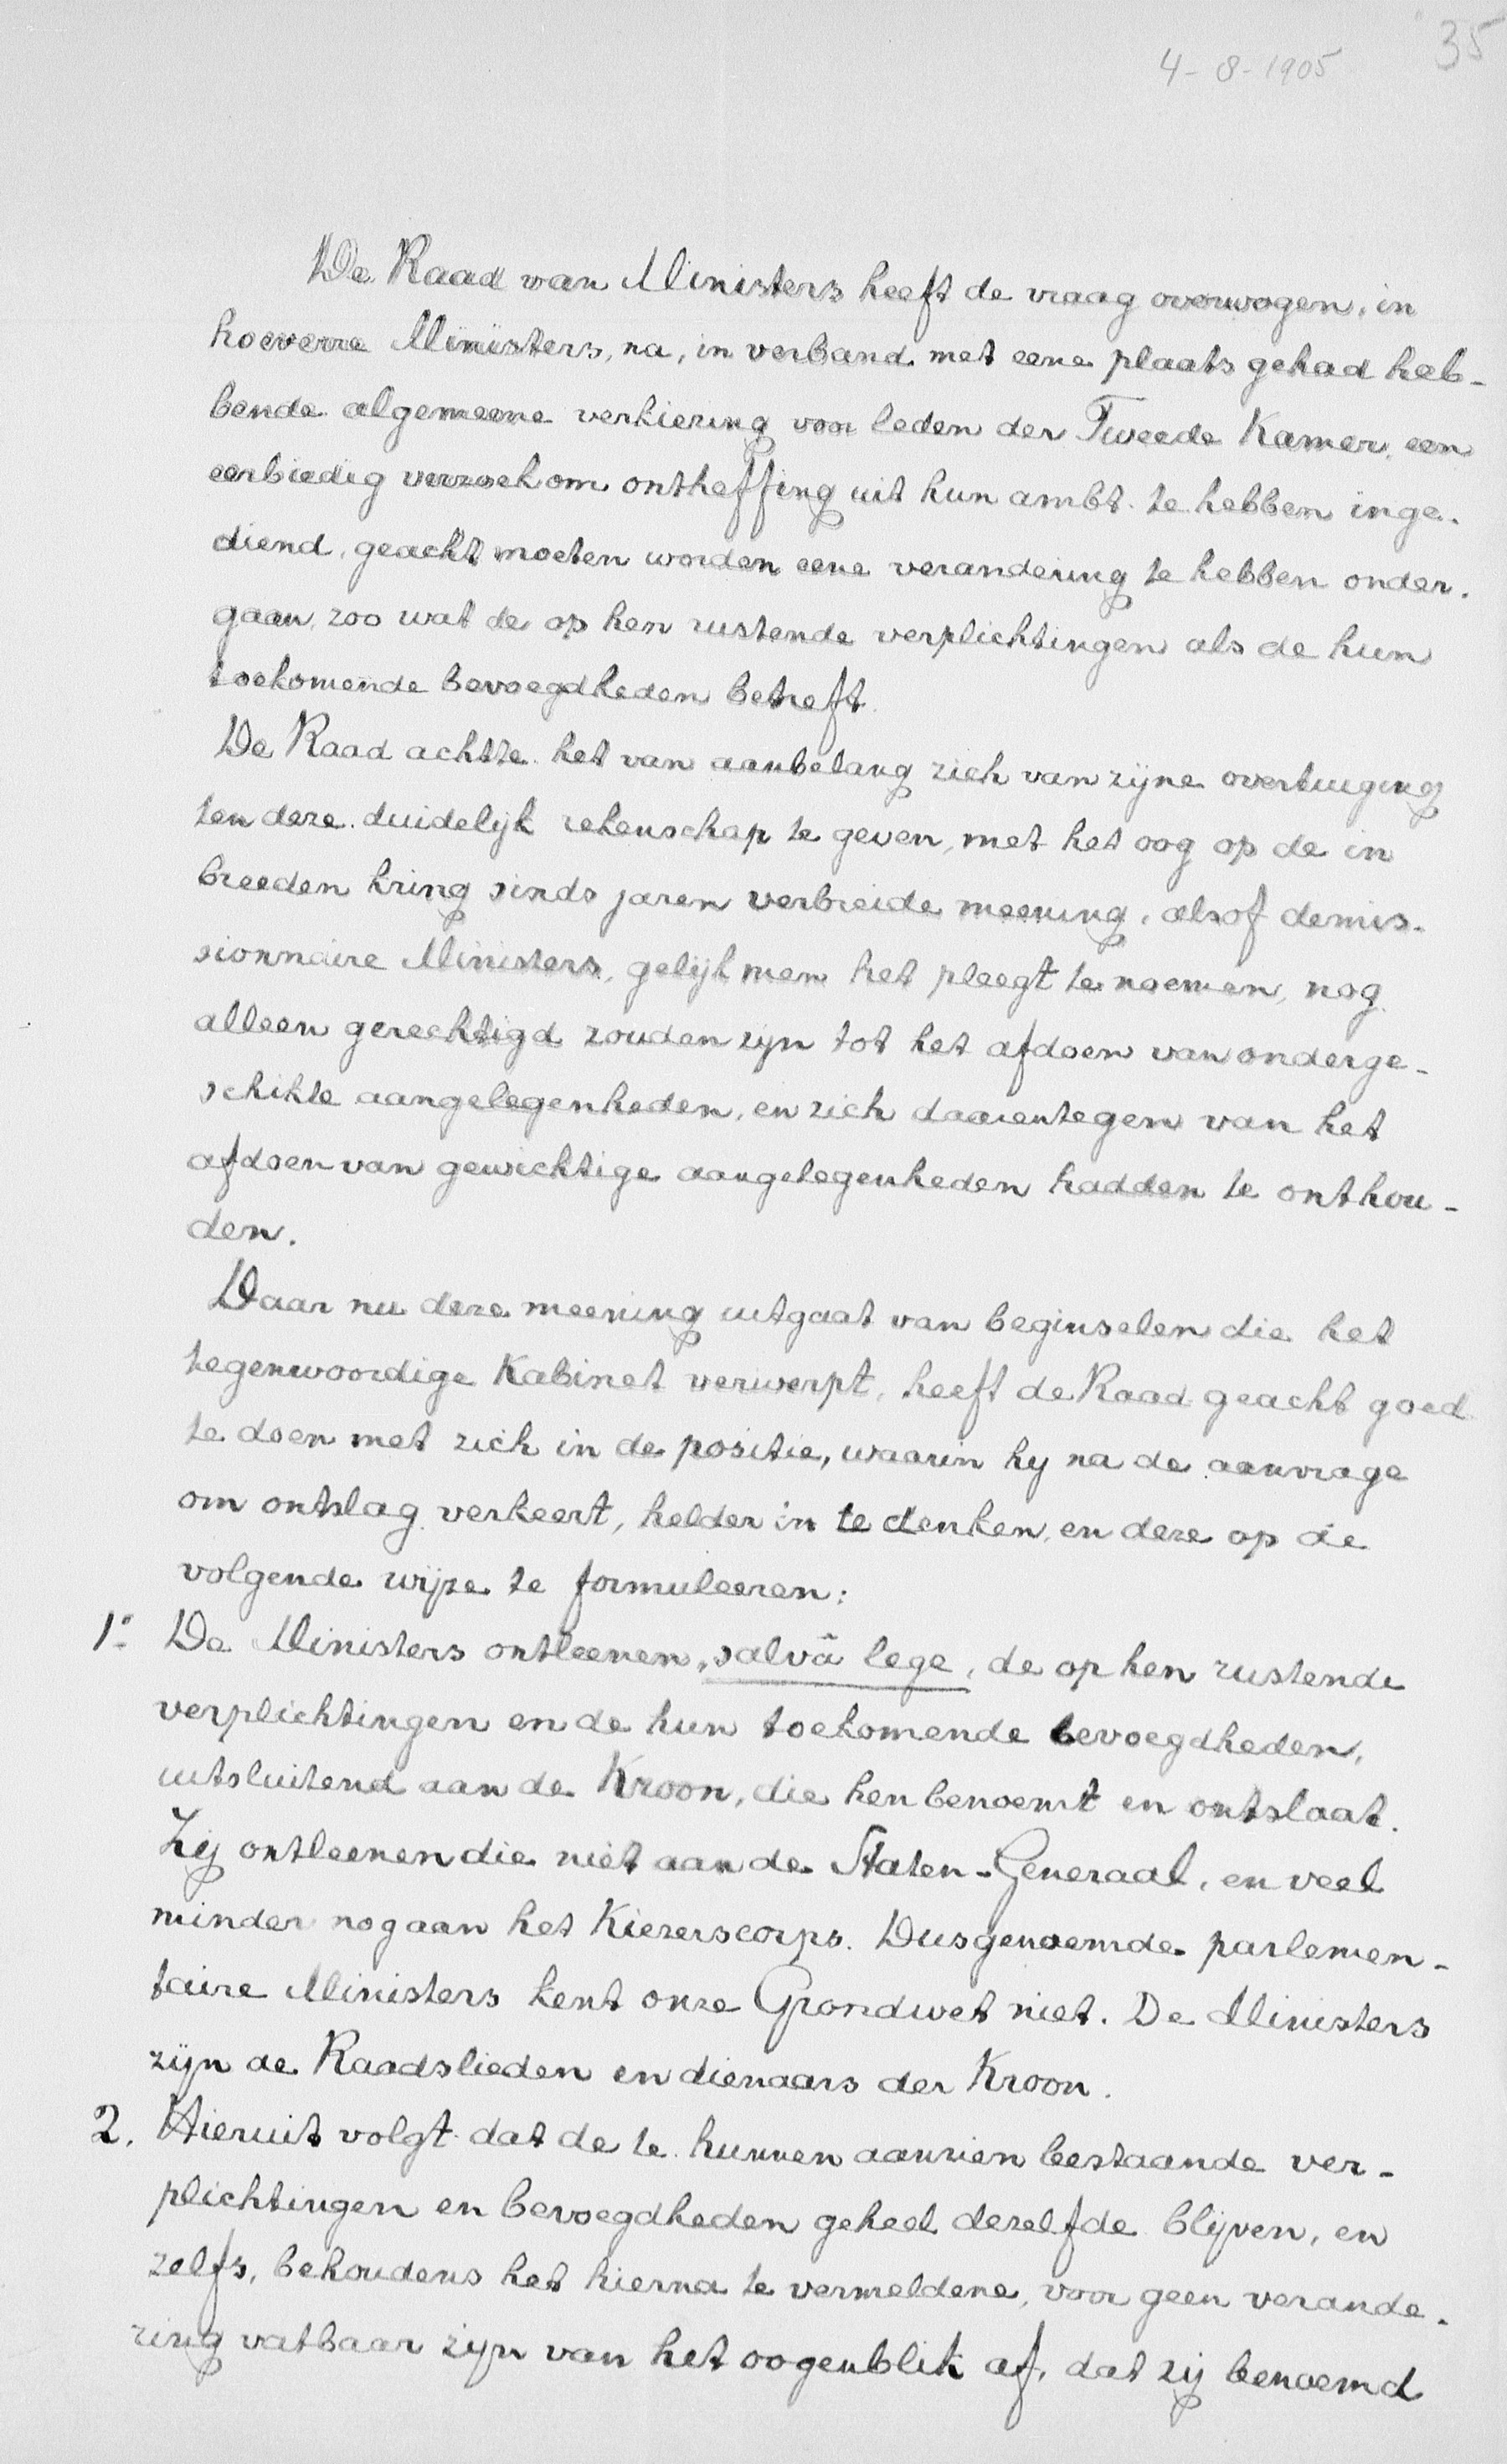 35
4-8-1905
De Raad van Ministers heeft de vraag overwogen, in
hoeverre Ministers, na, in verband met eene plaats gehad heb-
bende algemeene verkiezing voor leden der Tweede Kamer, een
eerbiedig verzoek om ontheffing uit hun ambt te hebben inge-
diend, geacht moeten worden eene verandering te hebben onder-
gaan, zoo wat de op hen rustende verplichtingen als de hun
toekomende bevoegdheden betreft.
De Raad achtte het van aanbelang zich van zijne overtuiging
ten deze duidelijk rekenschap te geven, met het oog op de in
breeden kring sinds jaren verbreide meening, alsof demis-
sionnaire Ministers, gelijk men het pleegt te noemen, nog
alleen gerechtigd zouden zijn tot het afdoen van onderge-
schikte aangelegenheden, en zich daarentegen van het
afdoen van gewichtige aangelegenheden hadden te onthou-
den.
Daar nu deze meening uitgaat van beginselen die het
tegenwoordige Kabinet verwerpt, heeft de Raad geacht goed
te doen met zich in de positie, waarin hij na de aanvrage
om ontslag verkeert, helder in te denken, en deze op de
volgende wijze te formuleeren:
1° De Ministers ontleenen, salvâ lege, de op hen rustende
verplichtingen en de hun toekomende bevoegdheden,
uitsluitend aan de Kroon, die hen benoemt en ontslaat.
Zij ontleenen die niet aan de Staten-Generaal, en veel
minder nog aan het Kiezerscorps. Dusgenoemde parlemen-
taire Ministers kent onze Grondwet niet. De Ministers
zijn de Raadslieden en dienaars der Kroon.
2. Hieruit volgt dat de te hunnen aanzien bestaande ver-
plichtingen en bevoegdheden geheel dezelfde blijven, en
zelfs, behoudens het hierna te vermeldene, voor geen verande-
ring vatbaar zijn van het oogenblik af, dat zij benoemd